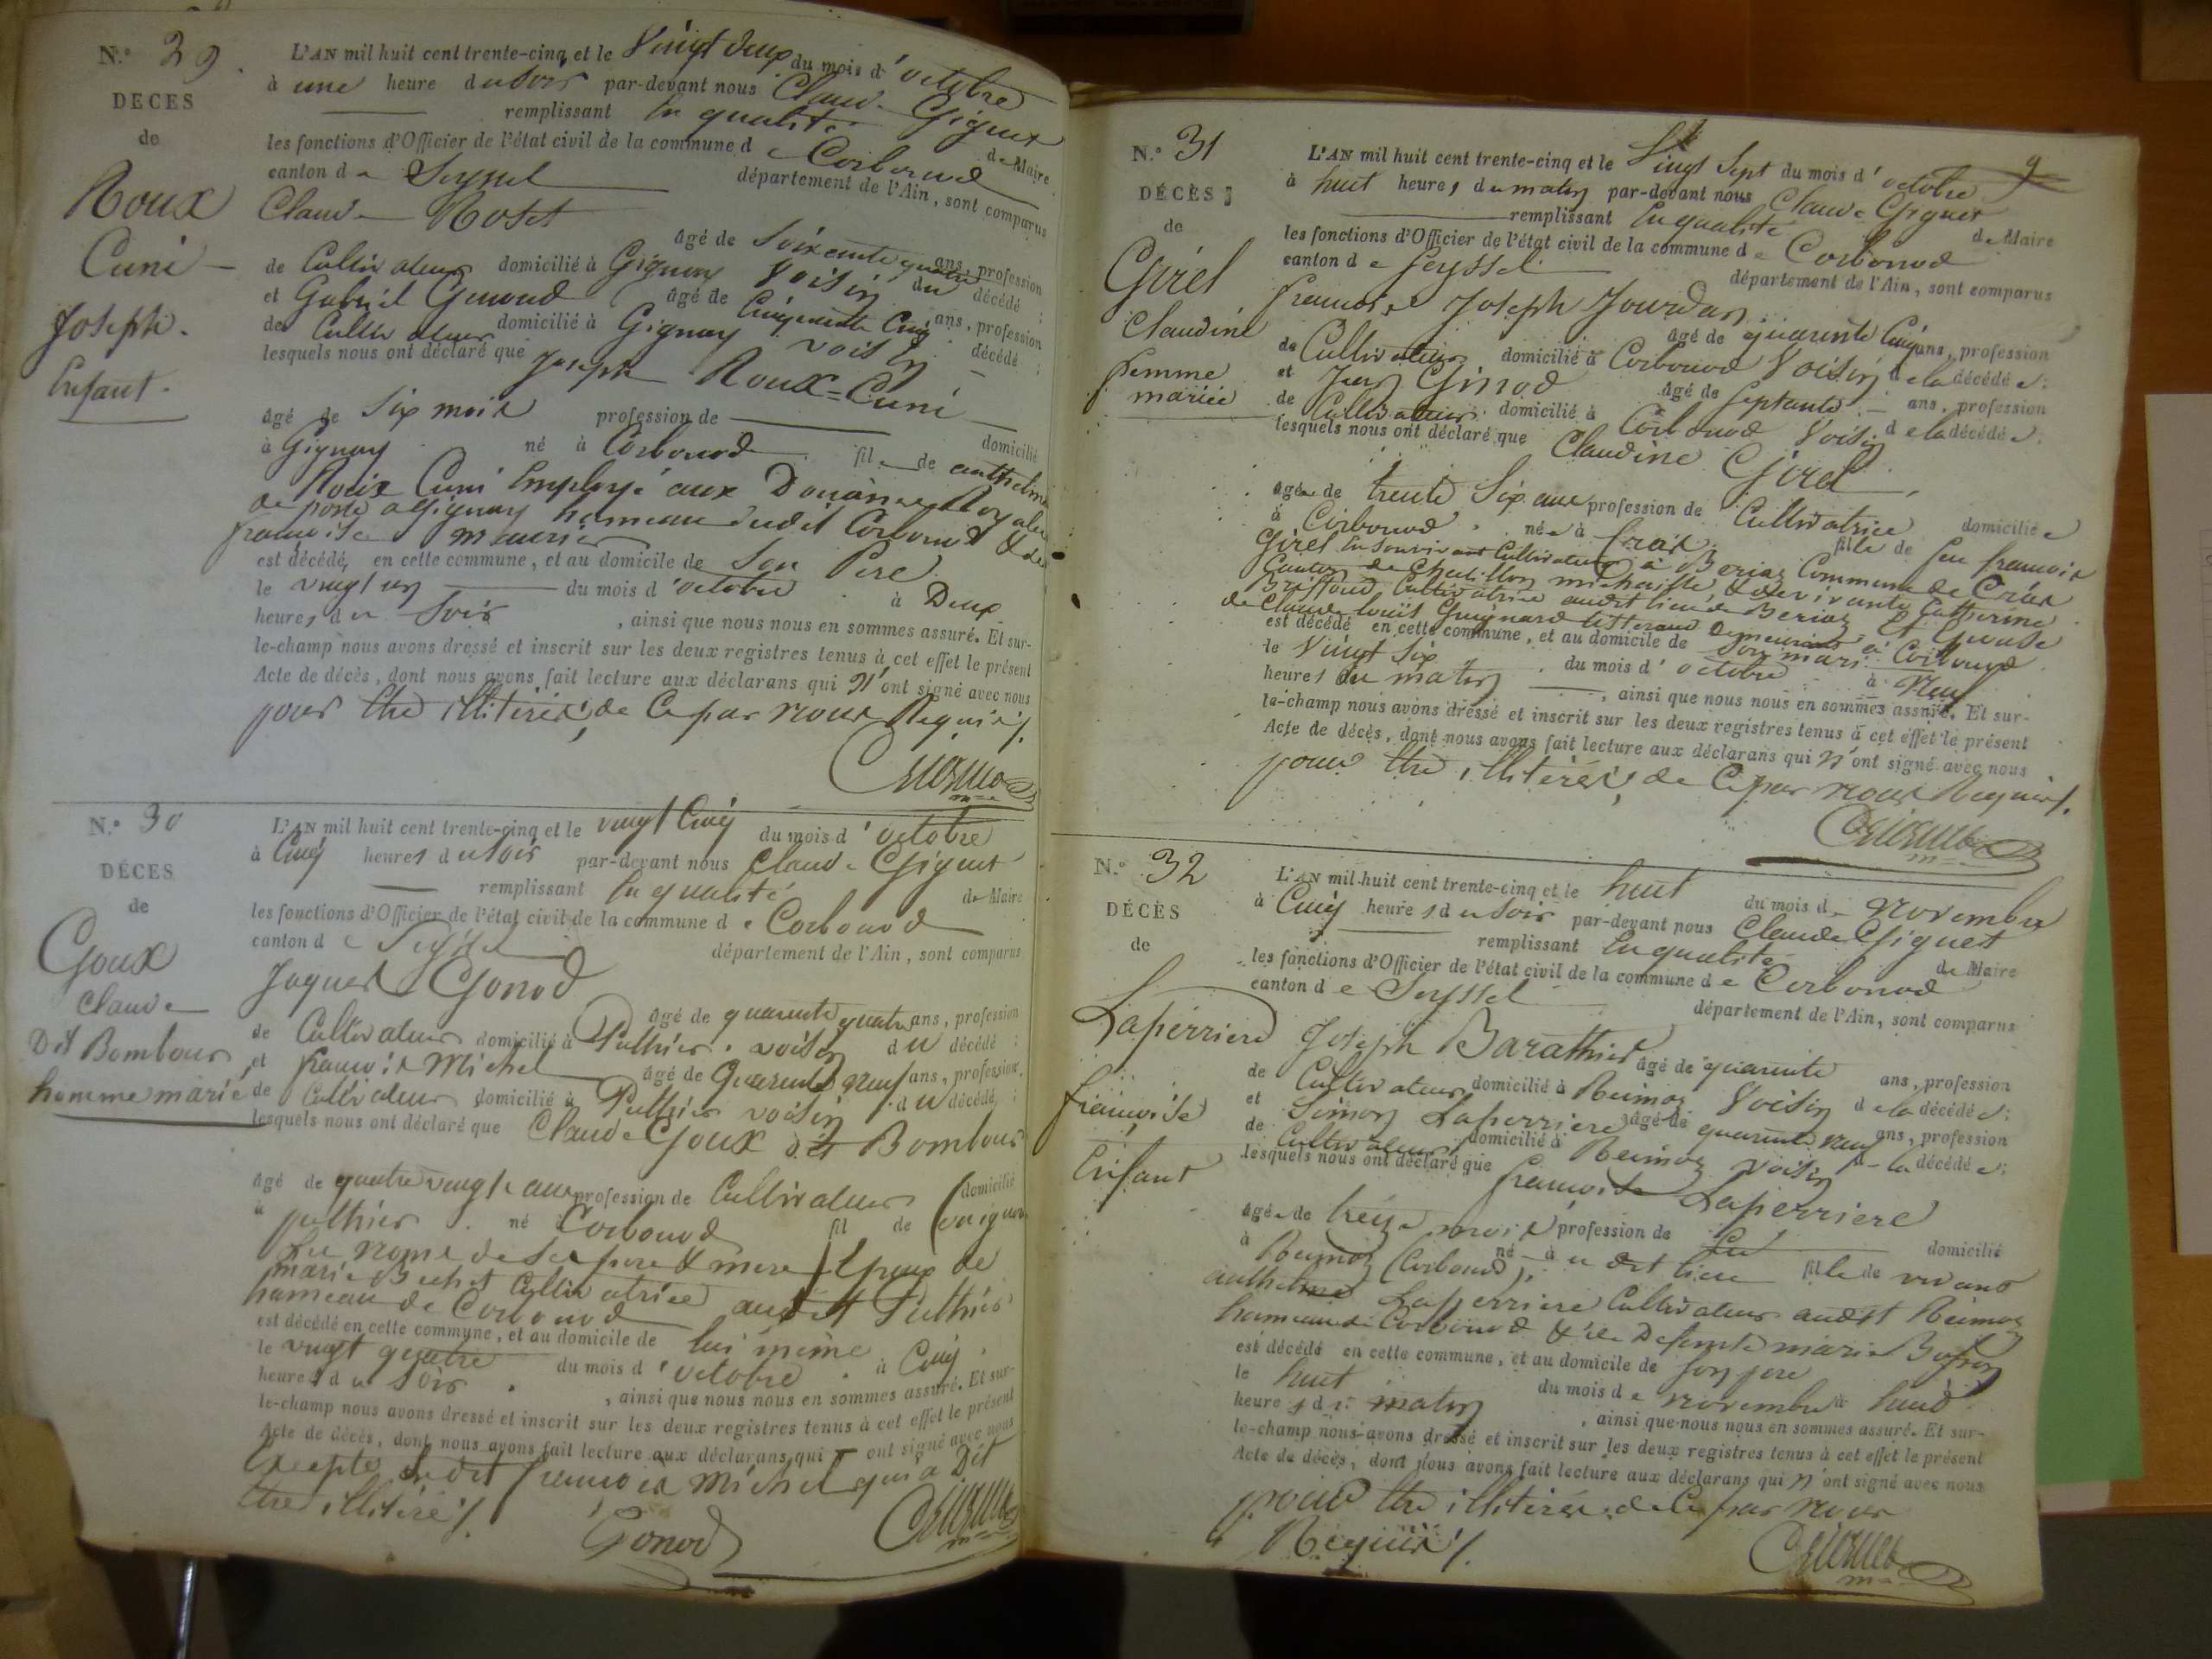 N.° 29.
DECES
de
Roux
Cuni -
Joseph.
Enfant.
L'AN mil huit cent trente-cinq et le Vingt deux du mois d'octobre
à une heure du Soir par-devant nous Claude Giguet
remplissant En qualité de Maire
les fonctions d'Officier de l'état civil de la commune de Corbonod
canton de Seyssel département de l'Ain, sont comparus
Claude Roset
âgé de Soixente quatre ans, profession
de Cultivateur domicilié à Gignay Voisin du décédé ;
et Gabriel Genoud âgé de Cinquente Cinq ans, profession
de Cultivateur domicilié à Gignay voisin décédé ;
lesquels nous ont déclaré que Joseph Roux=Cuni
âgé de Six mois profession de domicilié
à Gignay né à Corbonod fil de anthelme
Roux Cuni Employé aux Douanes Royales
de poste a Gignay hameau dudit Corbonod & de
francoise meunier
est décédé, en cette commune, et au domicile de Son Pere
le vingt un du mois d'octobre à Deux
heures du Soir, ainsi que nous nous en sommes assuré. Et sur-
le-champ nous avons dressé et inscrit sur les deux registres tenus à cet effet le présent
Acte de décès, dont nous avons fait lecture aux déclarans qui n'ont signé avec nous
pour être illitérés, de Ce par nous Requis /.
N.° 30
DÉCES
de
Goux
Claude
Dit Bombour
homme marié
L'AN mil huit cent trente-cinq et le vingt Cinq du mois d'octobre
à Cinq heures du Soir par-devant nous Claude Giguet
remplissant En qualité de Maire
les fonctions d'Officier de l'état civil de la commune de Corbonod
canton de Seyssel département de l'Ain, sont comparus
Jaques Gonod
âgé de quarente quatre ans, profession
de Cultivateur domicilié à Puthier. voisin du décédé ;
et francois Michel âgé de Quarente neuf ans, profession
de Cultivateur domicilié à Puthier voisin du décédé ;
lesquels nous ont déclaré que Claude Goux dit Bombour
âgé de quatre vingts ans profession de Cultivateur (domicilié
à puthier. né Corbonod fil de
Les noms de Ses pere & mere Epoux de
marie Cultivatrice audit Puthier
hameau de Corbonod
est décédé en cette commune, et au domicile de lui même
le vingt quatre du mois d'octobre à Cinq
heures du Soir, ainsi que nous nous en sommes assuré. Et sur-
le-champ nous avons dressé et inscrit sur les deux registres tenus à cet effet le présent
Acte de décès, dont nous avons fait lecture aux déclarans qui ont signé avec nous
Excepté Ledit francois Michel qui a Dit
être illitéré /.
Gonod
N.° 31
DÉCÈS
de
Girel
Claudine
femme
mariée
9
L'AN mil huit cent trente-cinq et le Vingt Sept du mois d'octobre
à huit heures du matin par-devant nous Claude Giguet
remplissant En qualité de Maire
les fonctions d'Officier de l'état civil de la commune de Corbonod
canton de Seyssel département de l'Ain, sont comparus
francois Joseph Jourdan
âgé de quarente Cinq ans, profession
de Cultivateur domicilié à Corbonod Voisin de la décédée ;
et Jean Ginod âgé de Septante ans, profession
de Cultivateur domicilié à Corbonod Voisin de la décédée ;
lesquels nous ont déclaré que Claudine Girel
agée de trente Six ans profession de Cultivatrice domiciliée
à Corbonod. née à Craz fille de feu francois
Girel En Son vivant Cultivateur à Beriaz Commune de Craz
Canton de Chatillon michaille, & de vivante Catherine
Briffoud Cultivatrice audit lieu de Beriaz Et Epouse
de Claude louis Guignard demeurant à Corbonod
est décédé en cette commune, et au domicile de Son mari
le Vingt Six du mois d'octobre à Neuf
heures du matin, ainsi que nous nous en sommes assuré. Et sur-
le-champ nous avons dressé et inscrit sur les deux registres tenus à cet effet le présent
Acte de décès, dont nous avons fait lecture aux déclarans qui n'ont signé avec nous
pour être illitérés, de Ce par nous Requis /.
N.° 32
DÉCÈS
de
Laperriere
francoise
Enfant
L'AN mil huit cent trente-cinq et le huit du mois de novembre
à Cinq heures du Soir par-devant nous Claude Giguet
remplissant En qualité de Maire
les fonctions d'Officier de l'état civil de la commune de Corbonod
canton de Seyssel département de l'Ain, sont comparus
Joseph Barathier âgé de quarente ans, profession
de Cultivateur domicilié à Reimoz Voisin de la décédée ;
et Simon Laperriere âgé de quarente neuf ans, profession
de Cultivateur domicilié à Reimoz voisin de la décédée ;
lesquels nous ont déclaré que francoise Laperriere
âgée de treize mois profession de domicilié
à Reimoz (Corbonod), né à u dit lieu fille de vivant
anthelme Laperriere Cultivateur audit Reimoz
hameau de Corbonod & de Defunte marie
est décédé en cette commune, et au domicile de Son pere
le huit du mois de novembre à huit
heures du matin, ainsi que nous nous en sommes assuré. Et sur-
le-champ nous avons dressé et inscrit sur les deux registres tenus à cet effet le présent
Acte de décès, dont nous avons fait lecture aux déclarans qui n'ont signé avec nous
pour être illitérés de Ce par nous
Requis /.